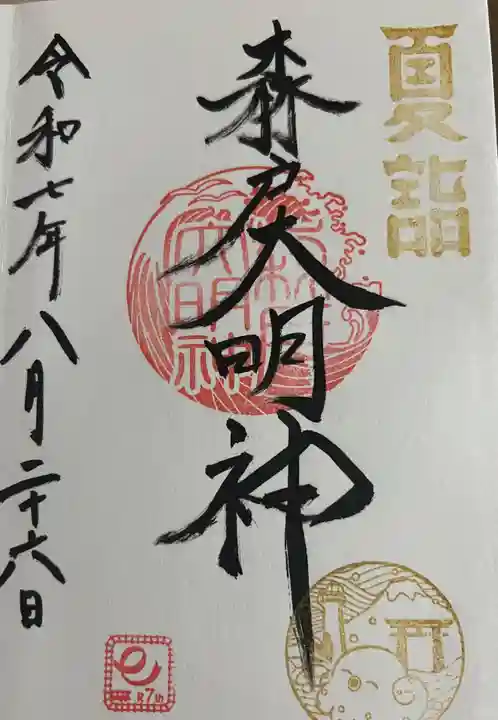 夏詣
森戸大明神
令和七年八月二十六日
R7th